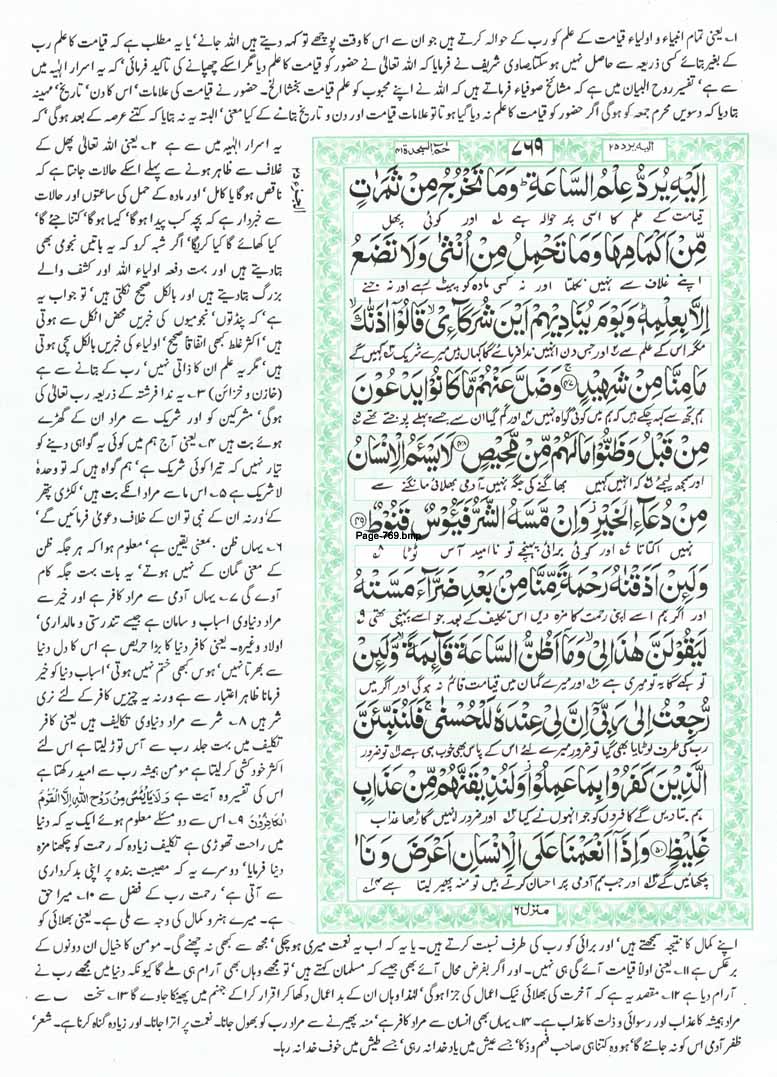 ۱۔ یعنی تمام انبیاء و اولیاء قیامت کے علم کو رب کے حوالہ کرتے ہیں جو ان سے اس کا وقت پوچھے تو کہہ دیتے ہیں اللہ جانے' یا یہ مطلب ہے کہ قیامت کا علم رب
کے بغیر بتائے کسی ذریعہ سے حاصل نہیں ہو سکتا صاوی شریف نے فرمایا کہ اللہ تعالیٰ نے حضور کو قیامت کا علم دیا مگر اسکے چھپانے کی تاکید فرمائی' کہ یہ اسرار الہیہ میں
سے ہے' تفسیر روح البیان میں ہے کہ مشائخ صوفیاء فرماتے ہیں کہ اللہ نے اپنے محبوب کو علم قیامت بخشا الخ۔ حضور نے قیامت کی علامات' اس کا دن' تاریخ' مہینہ
بتا دیا کہ دسویں محرم جمعہ کو ہوگی اگر حضور کو قیامت کا علم نہ دیا گیا ہوتا تو علامات قیامت اور دن و تاریخ بتانے کے کیا معنی' البتہ یہ نہ بتایا کہ کتنے عرصہ کے بعد ہوگی' کہ
الیہ یرد ۲۵
۷۶۹
حٰمٓ السجدۃ ۴۱
اِلَیْهِ یُرَدُّ عِلْمُ السَّاعَةِ ؕ وَمَا تَخْرُجُ مِنْ ثَمَرٰتٍ
قیامت کے علم کا اسی پر حوالہ ہے لہ اور کوئی پھل
مِّنْ اَكْمَامِهَا وَمَا تَحْمِلُ مِنْ اُنْثٰی وَلَا تَضَعُ
اپنے غلاف سے نہیں نکلتا اور نہ کسی مادہ کو پیٹ رہے اور نہ جنے
اِلَّا بِعِلْمِهٖ ؕ وَیَوْمَ یُنَادِیْهِمْ اَیْنَ شُرَكَآءِیْ ۙ قَالُوْۤا اٰذَنّٰكَ ۙ
مگر اس کے علم سے اور جس دن انہیں ندا فرمائے گا کہاں ہیں میرے شریک کہیں گے
مَا مِنَّا مِنْ شَهِیْدٍ ۚ﴿۴۷﴾ وَضَلَّ عَنْهُمْ مَّا كَانُوْا یَدْعُوْنَ
ہم تجھ سے کہہ چکے ہیں کہ ہم میں کوئی گواہ نہیں اور گم گیا ان سے جسے پہلے پوجتے تھے
مِنْ قَبْلُ وَظَنُّوْا مَا لَهُمْ مِّنْ مَّحِیْصٍ ﴿۴۸﴾ لَا یَسْـَٔمُ الْاِنْسَانُ
اور سمجھ لیے کہ انہیں کہیں بھاگنے کی جگہ نہیں آدمی بھلائی مانگنے سے
مِنْ دُعَآءِ الْخَیْرِ ؗ وَاِنْ مَّسَّهُ الشَّرُّ فَیَـُٔوْسٌ قَنُوْطٌ ﴿۴۹﴾
Page-769.bmp
نہیں اکتاتا اور کوئی برائی پہنچے تو ناامید آس
وَلَىِٕنْ اَذَقْنٰهُ رَحْمَةً مِّنَّا مِنْۢ بَعْدِ ضَرَّآءَ مَسَّتْهُ
اور اگر ہم اسے اپنی رحمت کا مزہ دیں اس تکلیف کے بعد جو اسے پہنچی تھی
لَیَقُوْلَنَّ هٰذَا لِیْ ۙ وَمَاۤ اَظُنُّ السَّاعَةَ قَآىِٕمَةً ۙ وَّلَىِٕنْ
تو کہے گا یہ تو میری ہے اور میرے گمان میں قیامت قائم نہ ہوگی اور اگر میں
رُّجِعْتُ اِلٰی رَبِّیْۤ اِنَّ لِیْ عِنْدَهٗ لَلْحُسْنٰی ۚ فَلَنُنَبِّئَنَّ
رب کی طرف لوٹایا بھی گیا تو ضرور میرے لئے اس کے پاس بھی خوبی ہی ہے تو ضرور
الَّذِیْنَ كَفَرُوْا بِمَا عَمِلُوْا ؗ وَلَنُذِیْقَنَّهُمْ مِّنْ عَذَابٍ
ہم بتا دیں گے کافروں کو جو انہوں نے کیا اور ضرور انہیں گاڑھا عذاب
غَلِیْظٍ ﴿۵۰﴾ وَاِذَاۤ اَنْعَمْنَا عَلَی الْاِنْسَانِ اَعْرَضَ وَنَاٰ
چکھائیں گے اور جب ہم آدمی پر احسان کرتے ہیں تو منہ پھیر لیتا ہے
منزل ۶
الجزء ۲۵
یہ اسرار الہیہ میں سے ہے ۲۔ یعنی اللہ تعالیٰ پھل کے
غلاف سے ظاہر ہونے سے پہلے اسکے حالات جانتا ہے کہ
ناقص ہوگا یا کامل' اور مادہ کے حمل کی ساعتوں اور حالات
سے خبردار ہے کہ بچہ کب پیدا ہوگا' کیسا ہوگا' کتنا جئے گا'
کیا کھائے گا کیا کریگا' اگر شبہ کرو کہ یہ باتیں نجومی بھی
بتا دیتے ہیں اور بہت دفعہ اولیاء اللہ اور کشف والے
بزرگ بتا دیتے ہیں' اور بالکل صحیح نکلتی ہیں' تو جواب یہ
ہے' کہ پنڈتوں' نجومیوں کی خبریں محض اٹکل سے ہوتی
ہیں' اکثر غلط کبھی اتفاقا صحیح' اولیاء کی خبریں بالکل سچی ہوتی
ہیں' مگر یہ علم ان کا ذاتی نہیں' رب کے بتانے سے ہے
(خازن و خزائن) ۳۔ یہ ندا فرشتہ کے ذریعہ رب تعالیٰ کی
ہوگی' مشرکین کو اور شریک سے مراد ان کے گھڑے
ہوئے بت ہیں ۴۔ یعنی آج ہم میں کوئی یہ گواہی دینے کو
تیار نہیں کہ تیرا کوئی شریک ہے' ہم گواہ ہیں کہ تو وحدہٗ
لاشریک ہے ۵۔ اس ما سے مراد انکے بت ہیں' لکڑی پتھر
کے' ورنہ ان کے نبی تو ان کے خلاف دعویٰ فرمائیں گے'
۶۔ یہاں ظن بمعنی یقین ہے' معلوم ہوا کہ ہر جگہ ظن
کے معنی گمان کے نہیں ہوتے' یہ بات بہت جگہ کام
آوے گی ۷۔ یہاں آدمی سے مراد کافر ہے اور خیر سے
مراد دنیاوی اسباب و سامان ہے جیسے تندرستی و مالداری'
اولاد وغیرہ۔ یعنی کافر دنیا کا بڑا حریص ہے اس کا دل دنیا
سے بھرتا نہیں' ہوس کبھی ختم نہیں ہوتی' اسباب دنیا کو خیر
فرمانا ظاہر اعتبار سے ہے ورنہ یہ چیزیں کافر کے لئے نری
شر ہیں ۸۔ شر سے مراد دنیاوی تکالیف ہیں یعنی کافر
تکلیف میں بہت جلد رب سے آس توڑ لیتا ہے اس لئے
اکثر خود کشی کر لیتا ہے مومن ہمیشہ رب سے امید رکھتا ہے
اس کی تفسیر وہ آیت ہے وَلَا یَایْـَٔسُ مِنْ رَّوْحِ اللّٰهِ اِلَّا الْقَوْمُ
الْكَافِرُوْنَ ۹۔ اس سے دو مسئلے معلوم ہوئے ایک یہ کہ دنیا
میں راحت تھوڑی ہے تکلیف زیادہ کہ رحمت کو چکھنا مزہ
دینا فرمایا' دوسرے یہ کہ مصیبت بندہ پر اپنی بدکرداری
سے آتی ہے' رحمت رب کے فضل سے ۱۰۔ میرا حق
ہے۔ میرے ہنر و کمال کی وجہ سے ملی ہے۔ یعنی بھلائی کو
اپنے کمال کا نتیجہ سمجھتے ہیں' اور برائی کو رب کی طرف نسبت کرتے ہیں۔ یا یہ کہ اب یہ نعمت میری ہو چکی' مجھ سے کبھی نہ چھنے گی۔ مومن کا خیال ان دونوں کے
برعکس ہے ۱۱۔ یعنی اولاً قیامت آئے گی ہی نہیں۔ اور اگر بفرض محال آئے بھی جیسے کہ مسلمان کہتے ہیں' تو مجھے وہاں بھی آرام ہی ملے گا کیونکہ دنیا میں مجھے رب نے
آرام دیا ہے ۱۲۔ مقصد یہ ہے کہ آخرت کی بھلائی نیک اعمال کی جزا ہوگی' لہٰذا وہاں ان کے بد اعمال دکھا کر اقرار کرا کے جہنم میں پھینکا جاوے گا ۱۳۔ سخت سے
مراد ہمیشہ کا عذاب اور رسوائی و ذلت کا عذاب ہے۔ ۱۴۔ یہاں بھی انسان سے مراد کافر ہے' منہ پھیرنے سے مراد رب کو بھول جانا۔ نعمت پر اترا جانا۔ اور زیادہ گناہ کرنا ہے۔ شعر'
ظفر آدمی اس کو نہ جانئے گا' ہو وہ کتنا ہی صاحب فہم و ذکا' جسے عیش میں یاد خدا نہ رہی' جسے طیش میں خوف خدا نہ رہا۔